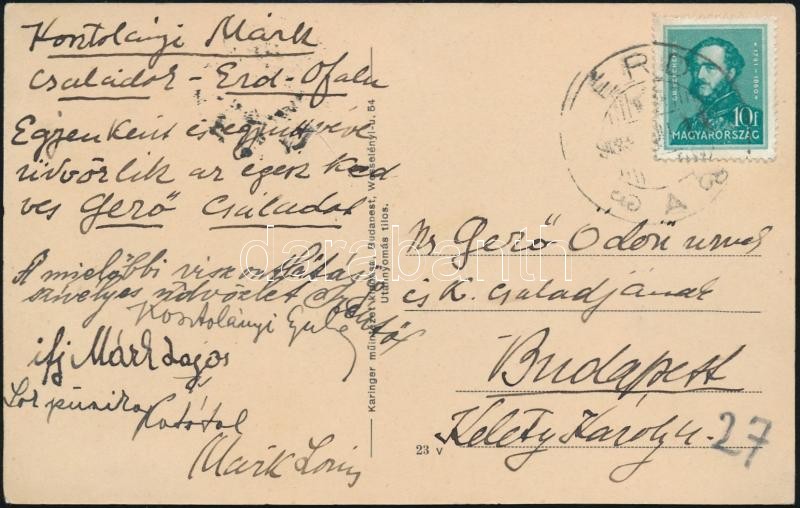 Kosztolányi Márk
Családok - Erd-Ofalu
Egyenként és együttvéve
üdvözlik az egész ked
ves Gerő Családot
A mielőbbi viszontlátásig
szívélyes üdvözlet
Kosztolányi Gyula
ifj Márk Lajos
Katótol
Márk Lowis
Karinger műintézet Budapest, Wesselényi-u. 54
Utánnyomás tilos.
23 v
GR. SZÉCHENYI
1791-1860
10f
MAGYARORSZÁG
Gerő Ödön
és K. családjának
Budapest
Kelety Károly u.
27
darabanth